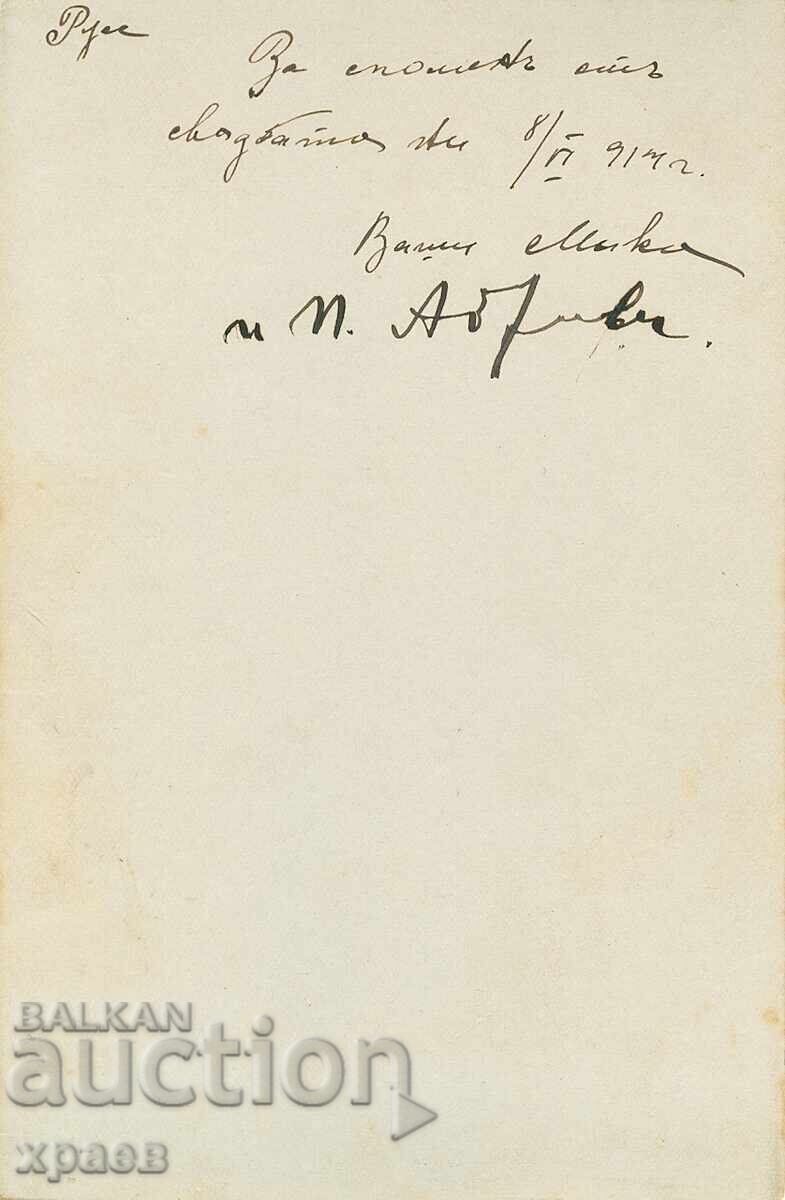 Русе
За споменъ отъ
свадбата ни 8/VI 914 г.
Ваши Мика
и П.
BALKAN
auction
храев